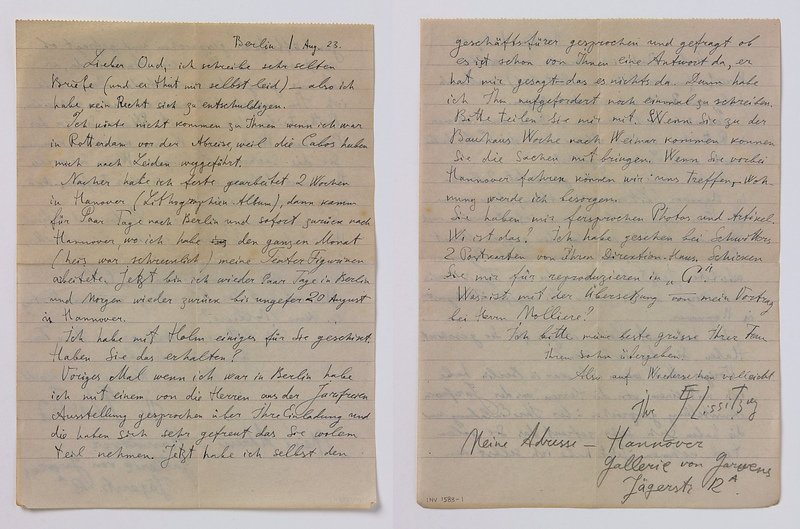 Berlin 1 Aug. 23.
Lieber Oud, ich schreibe sehr selten
Briefe (und es thut mir selbst leid) – also ich
habe kein Recht sich zu entschuldigen.
Ich könte nicht kommen zu Ihnen wenn ich war
in Rotterdam vor der Abreise, weil die Cabos haben
mich nach Leiden weggeführt.
Nacher habe ich feste gearbeitet 2 Wochen
in Hanover (Lithographien-Album), dann kamm
für Paar Tage nach Berlin und sofort zurück nach
Hannover, wo ich habe den ganzen Monat
(heis war schrecklich) meine Teater Figurinen
arbeitete. Jetzt bin ich wieder Paar Tage in Berlin
und Morgen wieder zurück bis ungefer 20 August
in Hannover.
Ich habe mit Holm einiges für Sie geschikt.
Haben Sie das erhalten?
Voriges Mal wenn ich war in Berlin habe
ich mit einem von die Herren aus der Juryfreien
Ausstellung gesprochen über Ihre Einladung und
die haben sich sehr gefreut das Sie wolen
Teil nehmen. Jetzt habe ich selbst den
geschäftsfürer gesprochen und gefragt ob
es ist schon von Ihnen eine Antwort da, er
hat mir gesagt das es nichts da. Dann habe
ich Ihn aufgefordert noch einmal zu schreiben.
Bitte teilen Sie mir mit. Wenn Sie zu der
Bauhaus Woche nach Weimar kommen können
Sie die Sachen mitbringen. Wenn Sie vorbei
Hannover fahren können wir uns treffen, Woh-
nung werde ich besorgen.
Sie haben mir fersprochen Photos und Artikel.
Wo ist das? Ich habe gesehen bei Schwitters
2 Postkarten von Ihren Direction-Haus. Schicken
Sie mir für reproduzieren in „G".
Was ist mit der Übersetzung von mein Vortrag
bei Herrn Molliere?
Ich bitte meine beste grüsse Ihrer Frau
Ihren sohn übergeben.
Also auf Wiedersehen vielleicht
Ihr El Lissitzky
Meine Adresse – Hannover
Gallerie von Garvens
Jägerstr.
INV 1583-1